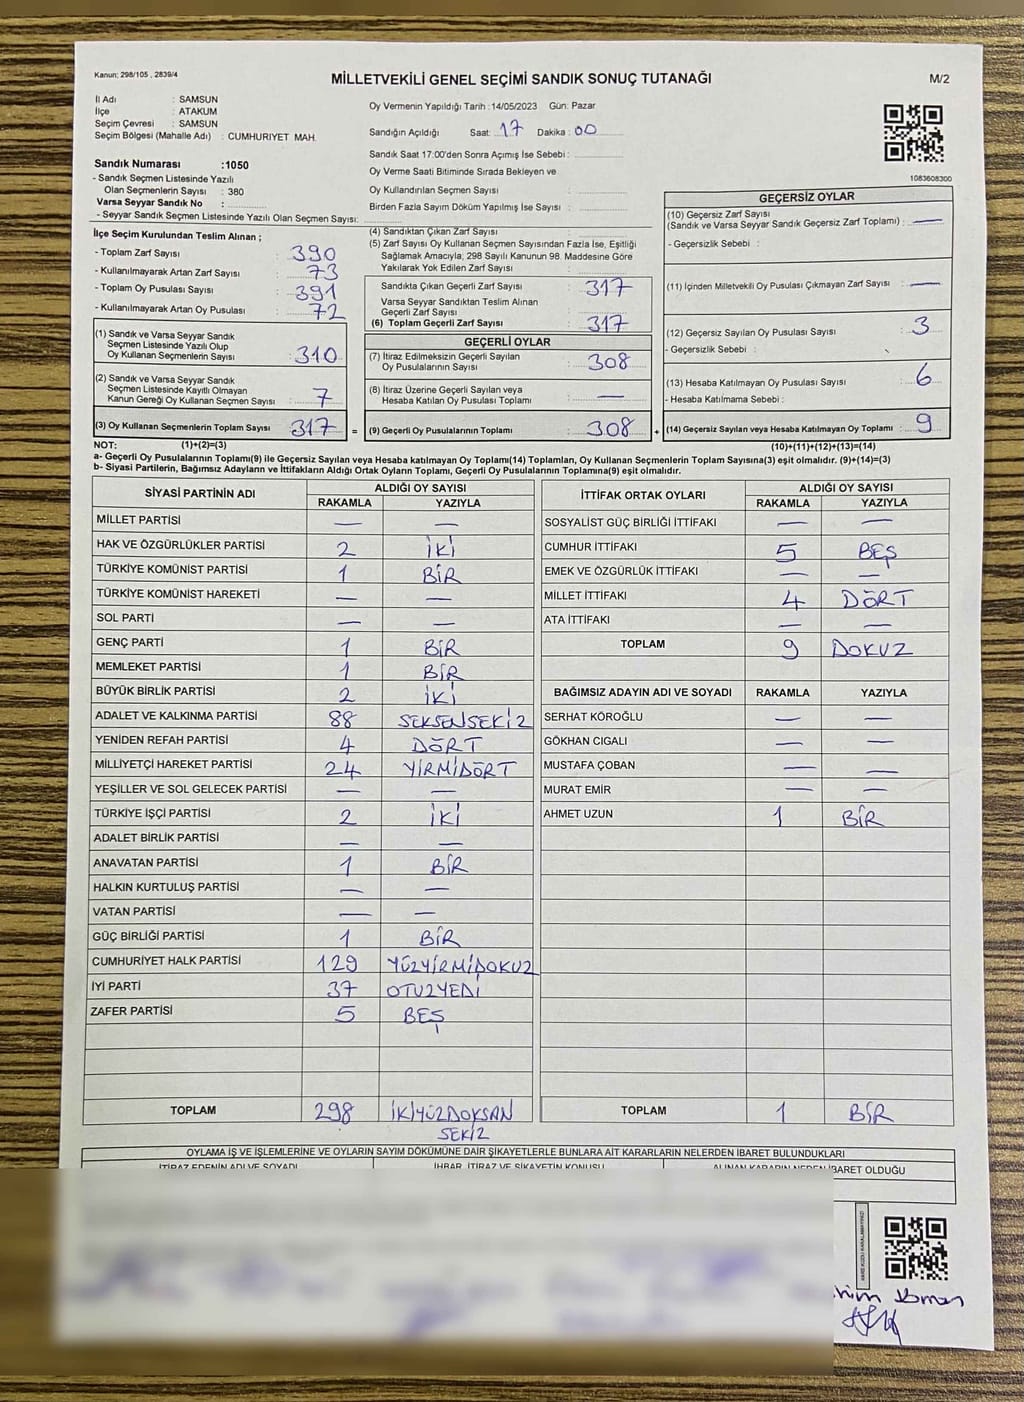 Kanun: 298/105 , 2839/4
MİLLETVEKİLİ GENEL SEÇİMİ SANDIK SONUÇ TUTANAĞI
M/2
İl Adı : SAMSUN
İlçe : ATAKUM
Seçim Çevresi : SAMSUN
Seçim Bölgesi (Mahalle Adı) : CUMHURIYET MAH.
Oy Vermenin Yapıldığı Tarih :14/05/2023 Gün: Pazar
Sandığın Açıldığı Saat: 17 Dakika : 00
Sandık Saat 17:00'den Sonra Açımış İse Sebebi :
Oy Verme Saati Bitiminde Sırada Bekleyen ve
Oy Kullandırılan Seçmen Sayısı :
Birden Fazla Sayım Döküm Yapılmış İse Sayısı :
Sandık Numarası :1050
- Sandık Seçmen Listesinde Yazılı
Olan Seçmenlerin Sayısı : 380
Varsa Seyyar Sandık No :
- Seyyar Sandık Seçmen Listesinde Yazılı Olan Seçmen Sayısı:
1083608300
İlçe Seçim Kurulundan Teslim Alınan ;
- Toplam Zarf Sayısı : 390
- Kullanılmayarak Artan Zarf Sayısı : 73
- Toplam Oy Pusulası Sayısı : 391
- Kullanılmayarak Artan Oy Pusulası : 72
(1) Sandık ve Varsa Seyyar Sandık
Seçmen Listesinde Yazılı Olup
Oy Kullanan Seçmenlerin Sayısı : 310
(2) Sandık ve Varsa Seyyar Sandık
Seçmen Listesinde Kayıtlı Olmayan
Kanun Gereği Oy Kullanan Seçmen Sayısı : 7
(3) Oy Kullanan Seçmenlerin Toplam Sayısı : 317 =
(4) Sandıktan Çıkan Zarf Sayısı :
(5) Zarf Sayısı Oy Kullanan Seçmen Sayısından Fazla İse, Eşitliği
Sağlamak Amacıyla, 298 Sayılı Kanunun 98. Maddesine Göre
Yakılarak Yok Edilen Zarf Sayısı :
Sandıkta Çıkan Geçerli Zarf Sayısı : 317
Varsa Seyyar Sandıktan Teslim Alınan
Geçerli Zarf Sayısı :
(6) Toplam Geçerli Zarf Sayısı : 317
GEÇERLİ OYLAR
(7) İtiraz Edilmeksizin Geçerli Sayılan
Oy Pusulalarının Sayısı : 308
(8) İtiraz Üzerine Geçerli Sayılan veya
Hesaba Katılan Oy Pusulası Toplamı : —
(9) Geçerli Oy Pusulalarının Toplamı : 308 +
GEÇERSİZ OYLAR
(10) Geçersiz Zarf Sayısı
(Sandık ve Varsa Seyyar Sandık Geçersiz Zarf Toplamı) : —
- Geçersizlik Sebebi :
(11) İçinden Milletvekili Oy Pusulası Çıkmayan Zarf Sayısı : —
(12) Geçersiz Sayılan Oy Pusulası Sayısı : 3
- Geçersizlik Sebebi :
(13) Hesaba Katılmayan Oy Pusulası Sayısı : 6
- Hesaba Katılmama Sebebi :
(14) Geçersiz Sayılan veya Hesaba Katılmayan Oy Toplamı : 9
NOT: (1)+(2)=(3) (10)+(11)+(12)+(13)=(14)
a- Geçerli Oy Pusulalarının Toplamı(9) ile Geçersiz Sayılan veya Hesaba katılmayan Oy Toplamı(14) Toplamları, Oy Kullanan Seçmenlerin Toplam Sayısına(3) eşit olmalıdır. (9)+(14)=(3)
b- Siyasi Partilerin, Bağımsız Adayların ve İttifakların Aldığı Ortak Oyların Toplamı, Geçerli Oy Pusulalarının Toplamına(9) eşit olmalıdır.
SİYASİ PARTİNİN ADI ALDIĞI OY SAYISI
RAKAMLA YAZIYLA
MİLLET PARTİSİ — —
HAK VE ÖZGÜRLÜKLER PARTİSİ 2 İKİ
TÜRKİYE KOMÜNİST PARTİSİ 1 BİR
TÜRKİYE KOMÜNİST HAREKETİ — —
SOL PARTİ — —
GENÇ PARTİ 1 BİR
MEMLEKET PARTİSİ 1 BİR
BÜYÜK BİRLİK PARTİSİ 2 İKİ
ADALET VE KALKINMA PARTİSİ 88 SEKSENSEKİZ
YENİDEN REFAH PARTİSİ 4 DÖRT
MİLLİYETÇİ HAREKET PARTİSİ 24 YİRMİDÖRT
YEŞİLLER VE SOL GELECEK PARTİSİ — —
TÜRKİYE İŞÇİ PARTİSİ 2 İKİ
ADALET BİRLİK PARTİSİ — —
ANAVATAN PARTİSİ 1 BİR
HALKIN KURTULUŞ PARTİSİ — —
VATAN PARTİSİ — —
GÜÇ BİRLİĞİ PARTİSİ 1 BİR
CUMHURİYET HALK PARTİSİ 129 YÜZYİRMİDOKUZ
İYİ PARTİ 37 OTUZYEDİ
ZAFER PARTİSİ 5 BEŞ
TOPLAM 298 İKİYÜZDOKSAN
SEKİZ
İTTİFAK ORTAK OYLARI ALDIĞI OY SAYISI
RAKAMLA YAZIYLA
SOSYALİST GÜÇ BİRLİĞİ İTTİFAKI — —
CUMHUR İTTİFAKI 5 BEŞ
EMEK VE ÖZGÜRLÜK İTTİFAKI — —
MİLLET İTTİFAKI 4 DÖRT
ATA İTTİFAKI — —
TOPLAM 9 DOKUZ
BAĞIMSIZ ADAYIN ADI VE SOYADI RAKAMLA YAZIYLA
SERHAT KÖROĞLU — —
GÖKHAN CIGALI — —
MUSTAFA ÇOBAN — —
MURAT EMİR — —
AHMET UZUN 1 BİR
TOPLAM 1 BİR
OYLAMA İŞ VE İŞLEMLERİNE VE OYLARIN SAYIM DÖKÜMÜNE DAİR ŞİKAYETLERLE BUNLARA AİT KARARLARIN NELERDEN İBARET BULUNDUKLARI
İTİRAZ EDENİN ADI VE SOYADI İHBAR, İTİRAZ VE ŞİKAYETİN KONUSU ALINAN KARARIN NEDEN İBARET OLDUĞU